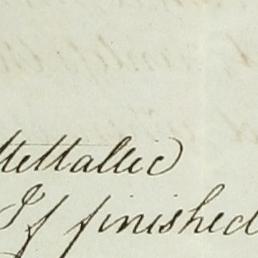 Mettallic
If finished